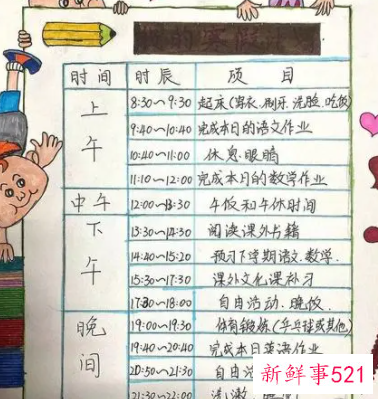 时间 时辰 项目
上午
8:30~9:30 起床(穿衣.刷牙.洗脸.吃饭)
9:40~10:40 完成本日的语文作业
10:40~11:00 休息.眼睛
11:10~12:00 完成本日的数学作业
中午 12:00~13:30 午饭和午休时间
下午
13:30~14:30 阅读课外书籍
14:40~15:20 预习下学期语文.数学.
15:30~17:30 课外文化课补习
17:30~18:00 自由活动.晚饭
晚间
19:00~19:30 体育锻炼(乒乓球或其他)
19:40~20:40 完成本日英语作业
20:50~21:30 自由
21:30~22:00 洗漱
新鲜事521